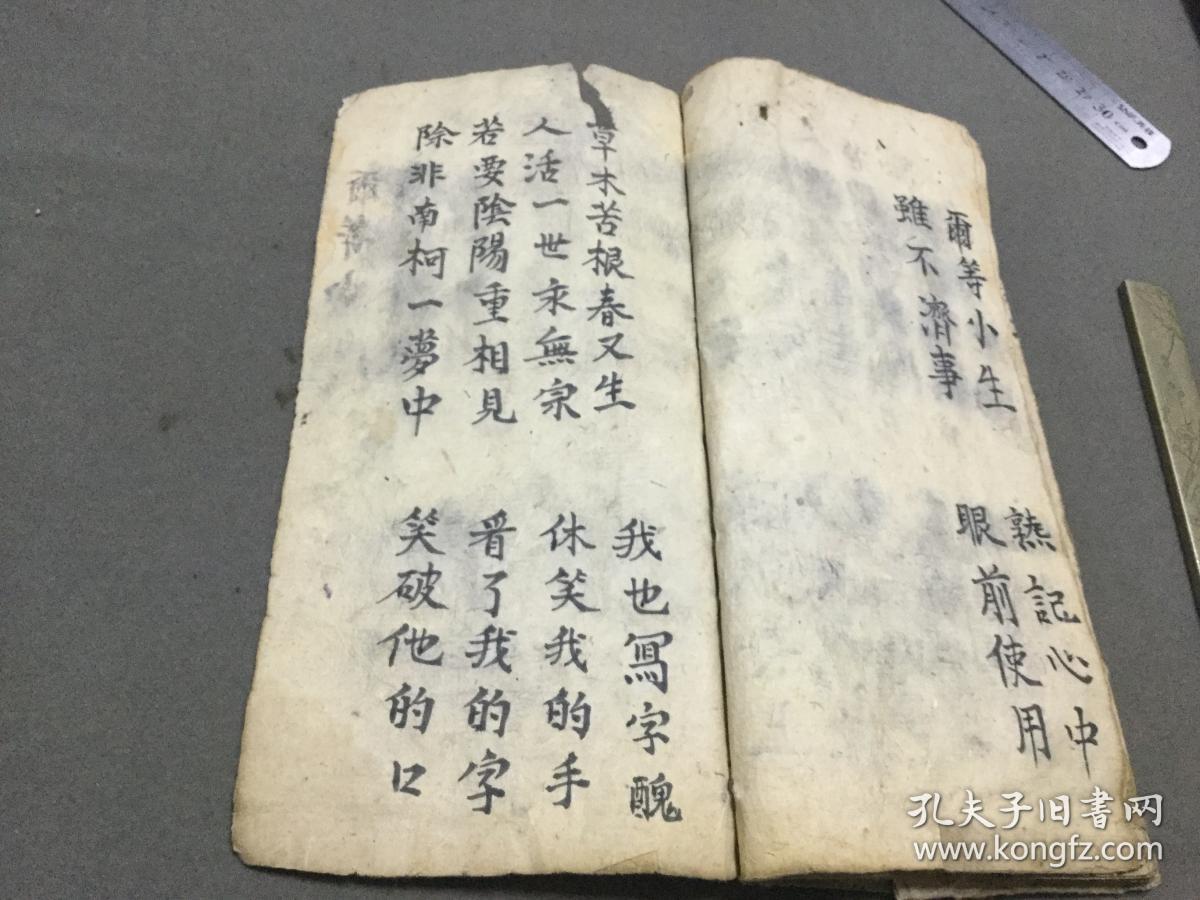 爾等小生
雖不濟事
熟記心中
眼前使用
草木苦根春又生
人活一世永無宗
若要陰陽重相見
除非南柯一夢中
我也寫字醜
休笑我的手
看了我的字
笑破他的口
30
孔夫子旧書网
www.kongfz.com